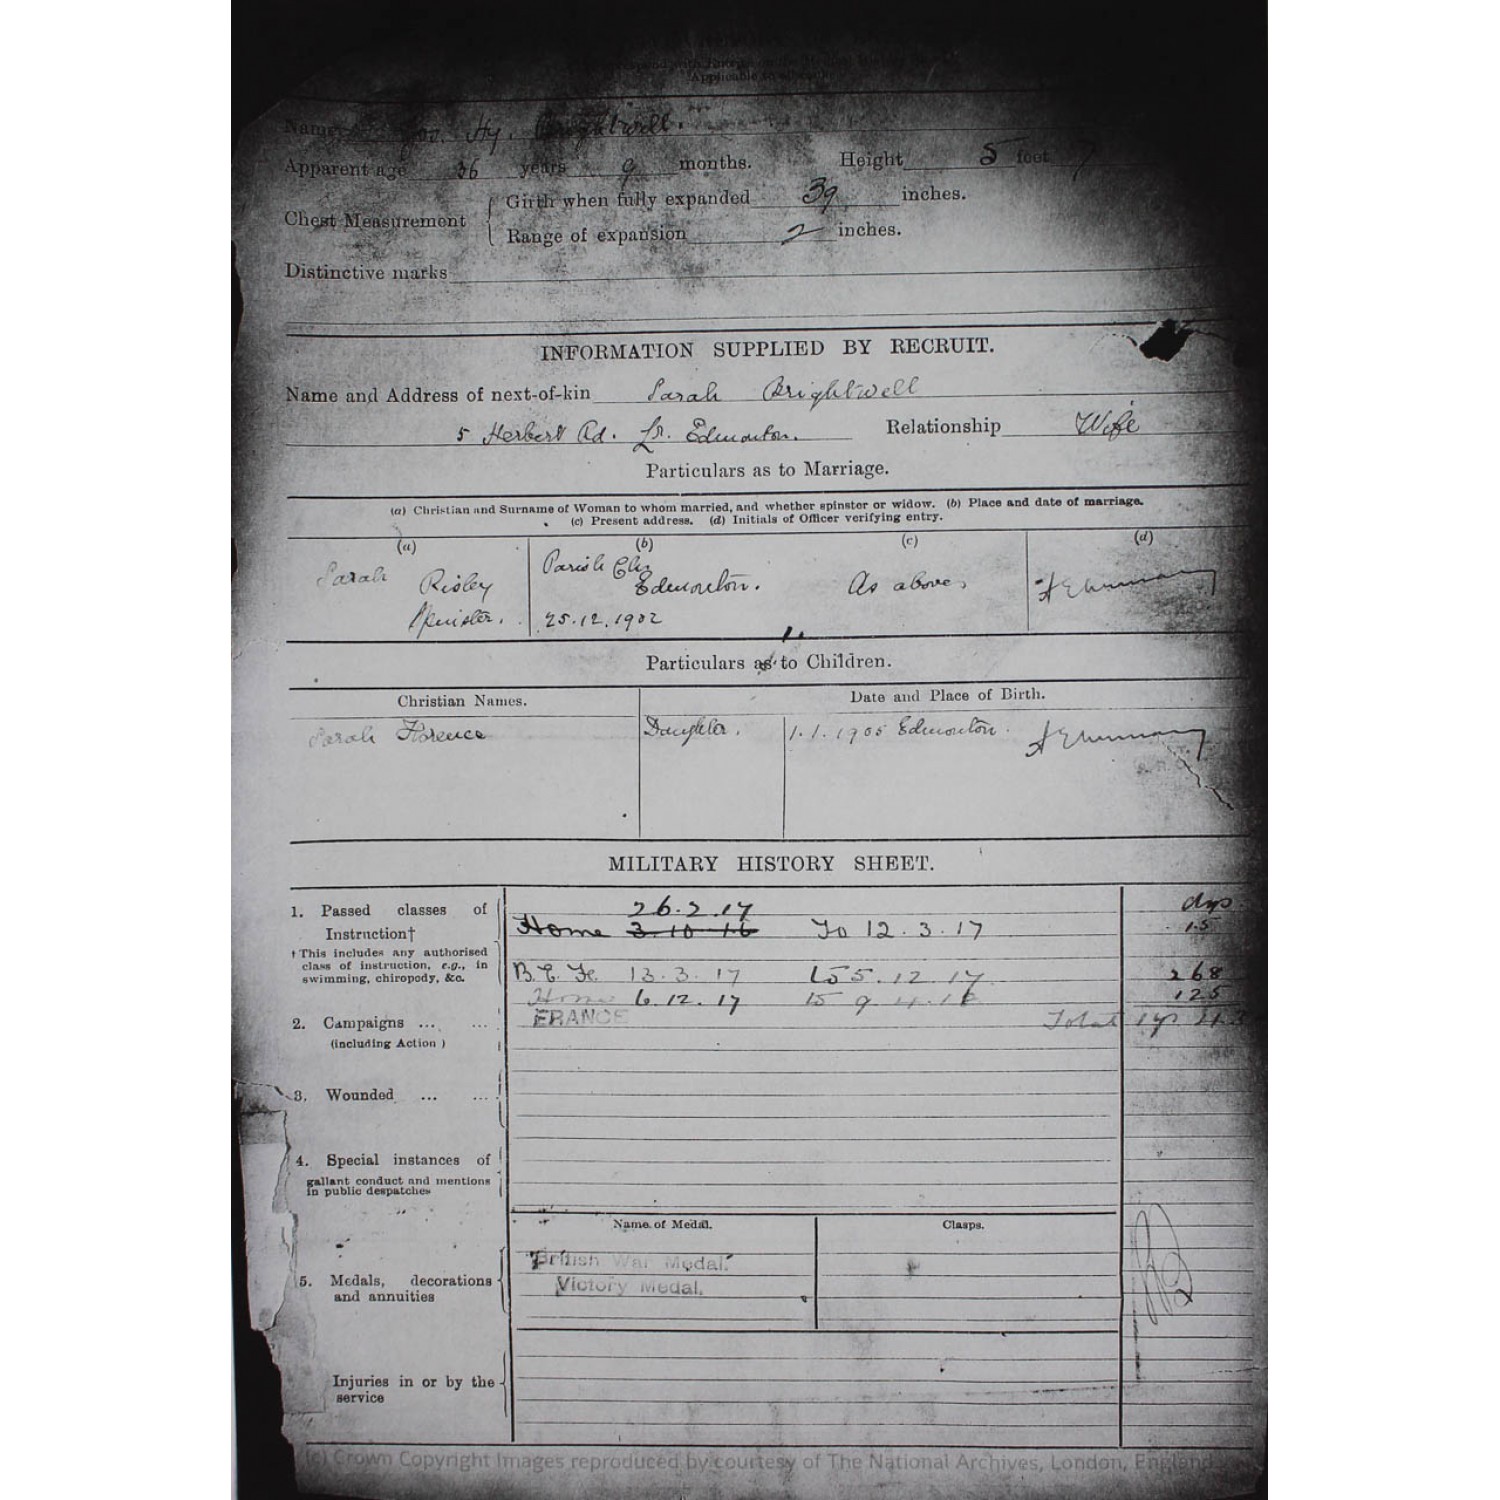 Name Geo. Hy. Brightwell.
Apparent age 36 years 9 months. Height 5 feet 7
Chest Measurement { Girth when fully expanded 39 inches.
Range of expansion 2 inches.
Distinctive marks
INFORMATION SUPPLIED BY RECRUIT.
Name and Address of next-of-kin Sarah Brightwell
5 Herbert Rd. Lr. Edmonton. Relationship Wife
Particulars as to Marriage.
(a) Christian and Surname of Woman to whom married, and whether spinster or widow. (b) Place and date of marriage.
(c) Present address. (d) Initials of Officer verifying entry.
(a) (b) (c) (d)
Sarah Risley Parish Ch. Edmonton. As above
Spinster. 25.12.1902
Particulars as to Children.
Christian Names. Date and Place of Birth.
Sarah Florence Daughter. 1.1.1905 Edmonton.
MILITARY HISTORY SHEET.
1. Passed classes of Instruction† 26.2.17 dys
Home 3.10.16 To 12.3.17 15
† This includes any authorised
class of instruction, e.g., in
swimming, chiropody, &c.
B.E.F. 13.3.17 to 5.12.17 268
Home 6.12.17 to 9.4.18 125
2. Campaigns ... ... FRANCE Total 1 yr 43
(including Action )
3. Wounded ... ...
4. Special instances of
gallant conduct and mentions
in public despatches
Name of Medal. Clasps.
5. Medals, decorations
and annuities
British War Medal.
Victory Medal.
Injuries in or by the
service
(c) Crown Copyright Images reproduced by courtesy of The National Archives, London, England